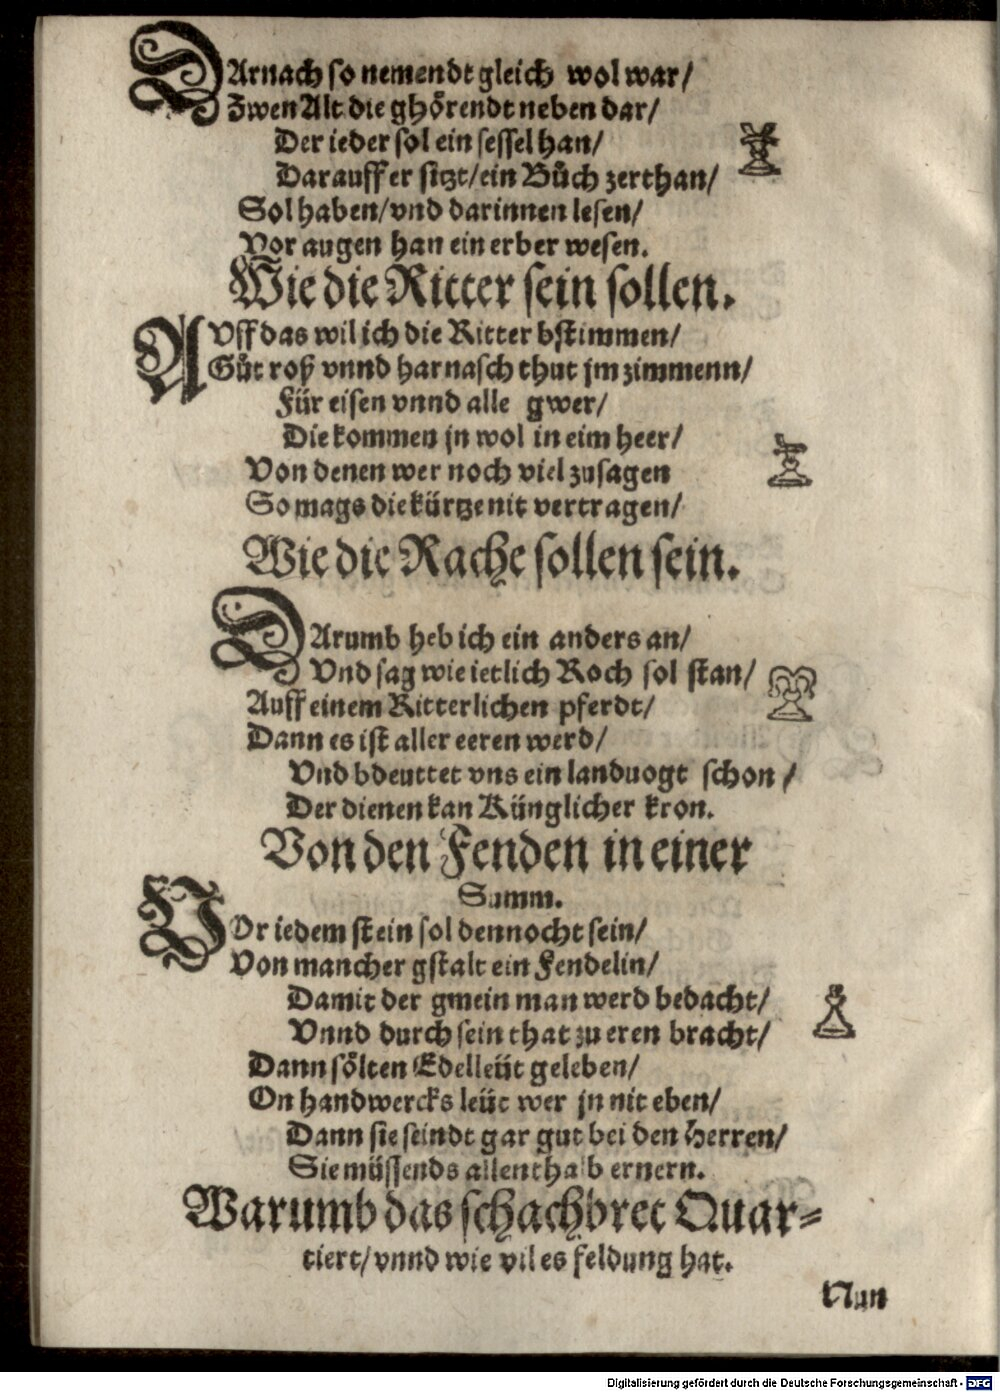 DArnach so nemendt gleich wol war/
Zwen Alt die ghörendt neben dar/
Der ieder sol ein sessel han/
Darauff er sitzt/ein Bůch zerthan/
Sol haben/vnd darinnen lesen/
Vor augen han ein erber wesen.
Wie die Ritter sein sollen.
AVff das wil ich die Ritter bstimmen/
Gůt roß vnnd harnasch thut jm zimmenn/
Für eisen vnnd alle gwer/
Die kommen jn wol in eim heer/
Von denen wer noch viel zusagen
So mags die kürtze nit vertragen/
Wie die Rache sollen sein.
DArumb heb ich ein anders an/
Vnd sag wie ietlich Roch sol stan/
Auff einem Ritterlichen pferdt/
Dann es ist aller eeren werd/
Vnd bdeuttet vns ein landuogt schon/
Der dienen kan Künglicher kron.
Von den Fenden in einer
Summ.
VOr iedem stein sol dennocht sein/
Von mancher gstalt ein Fendelin/
Damit der gmein man werd bedacht/
Vnnd durch sein that zu eren bracht/
Dann sölten Edelleüt geleben/
On handwercks leüt wer jn nit eben/
Dann sie seindt gar gut bei den Herren/
Sie müssends allenthalb ernern.
Warumb das schachbret Quar⸗
tiert/vnnd wie vil es feldung hat.
Nun
Digitalisierung gefördert durch die Deutsche Forschungsgemeinschaft - DFG